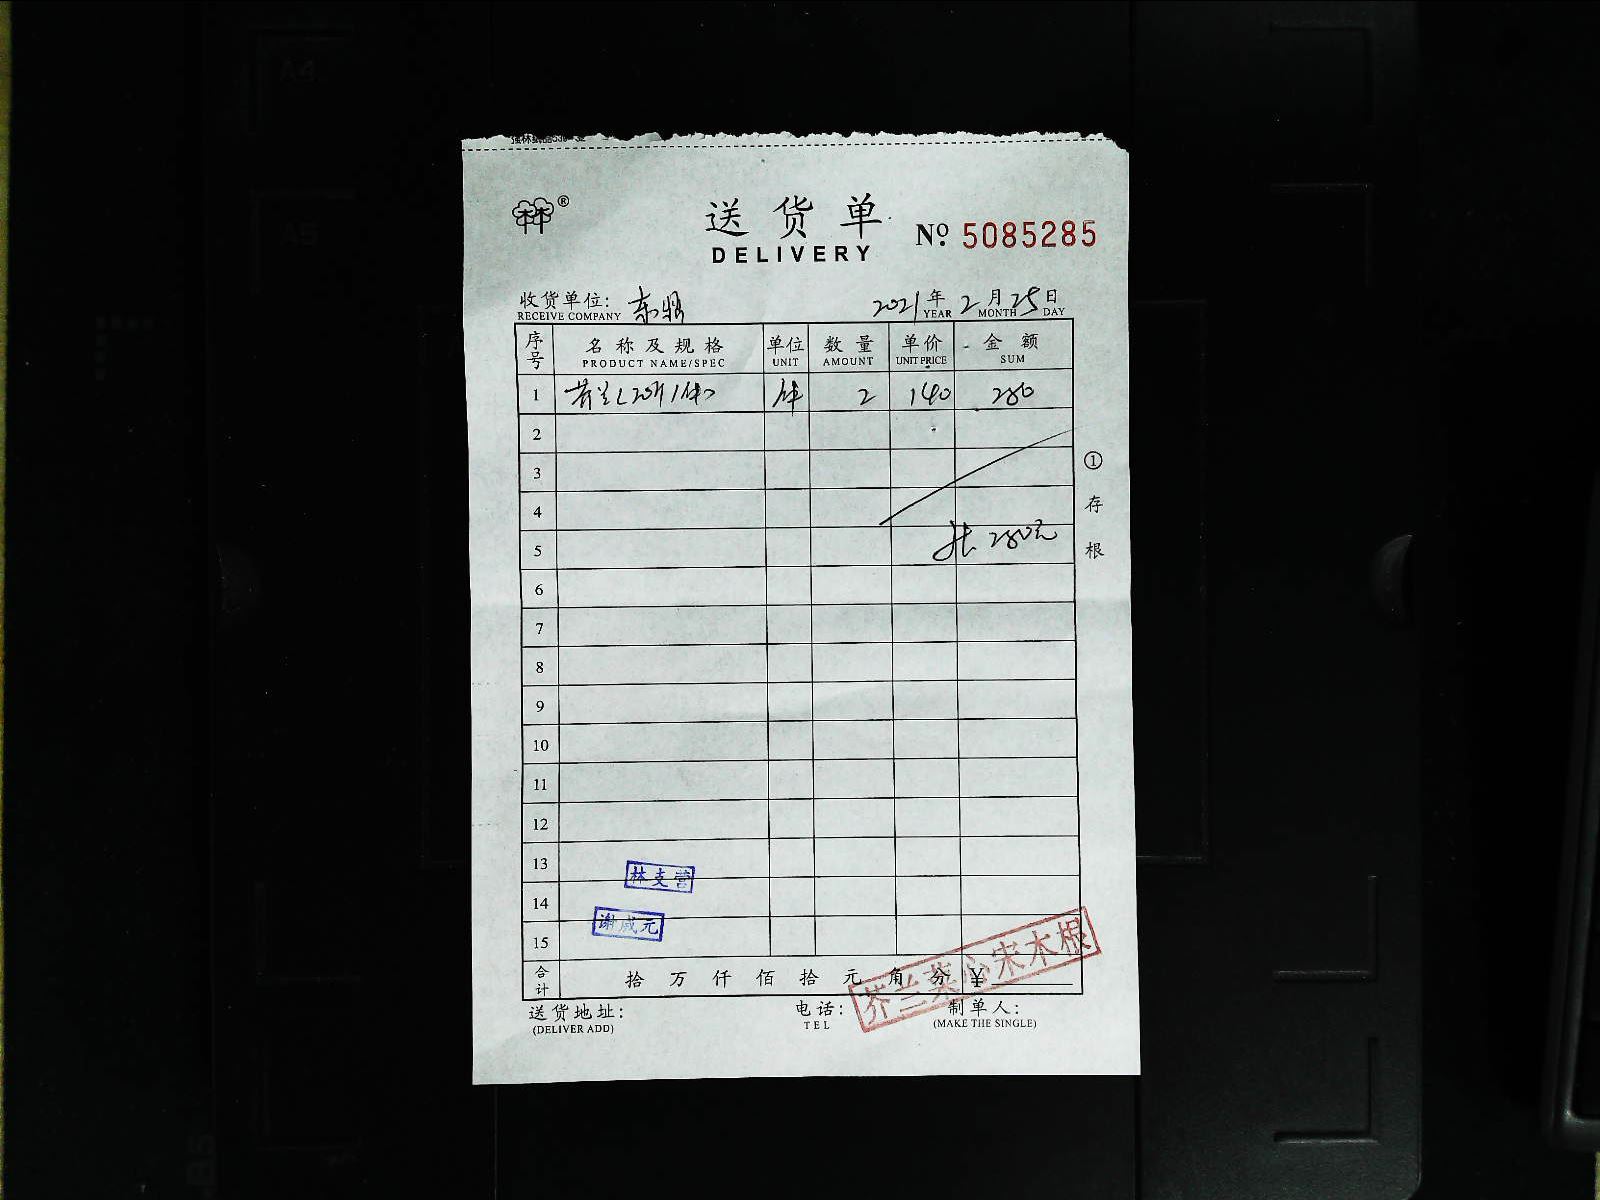 林®
送货单
DELIVERY
№ 5085285
收货单位: 东明
RECEIVE COMPANY
2021年2月25日
YEAR MONTH DAY
序号 名称及规格 单位 数量 单价 金额
PRODUCT NAME/SPEC UNIT AMOUNT UNIT PRICE SUM
1 芥兰(20斤/件) 件 2 140 280
2
3
4
5 共280元
6
7
8
9
10
11
12
13
14
15
林支营
谢成元
合计 拾万仟佰拾元角分 ¥
芥兰菜心宋木根
送货地址: 电话: 制单人:
(DELIVER ADD) TEL (MAKE THE SINGLE)
①存根
A4
A5
B5